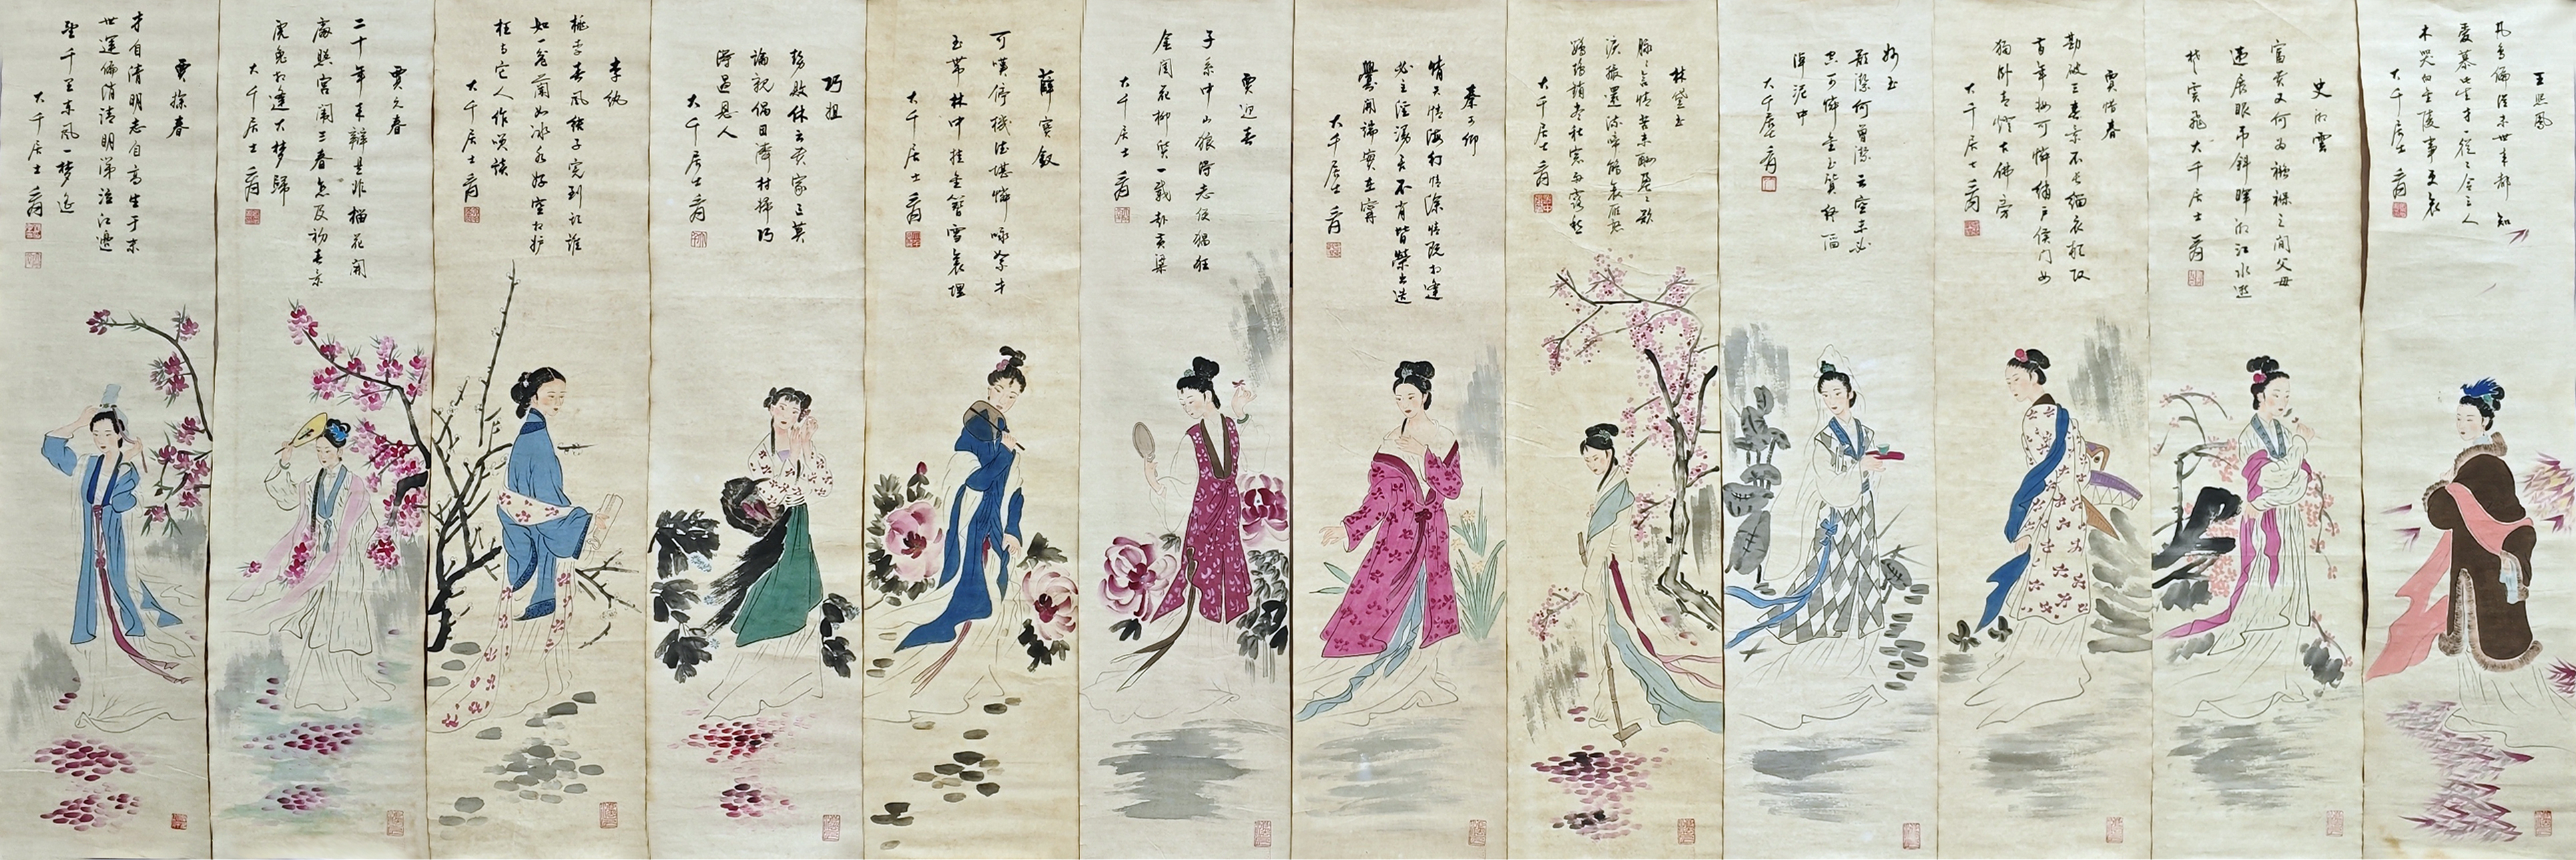 王熙鳳
凡鳥偏從末世來都知
愛慕此生才一從二令三人
木哭向金陵事更哀
大千居士 爰
史湘雲
富貴又何為襁褓之間父母
違展眼弔斜暉湘江水逝
楚雲飛大千居士 爰
賈惜春
勘破三春景不長緇衣頓改
昔年妝可憐繡戶侯門女
獨卧青燈大佛旁
大千居士 爰
妙玉
欲潔何曾潔云空未必
空可憐金玉質終陷
淖泥中
大千居士 爰
林黛玉
大千居士 爰
秦可卿
情天情海幻情深情既相逢
必主淫漫言不肖皆榮出造
釁開端實在寧
大千居士 爰
賈迎春
子系中山狼得志便猖狂
金閨花柳質一載赴黃粱
大千居士 爰
薛寶釵
可嘆停機德堪憐咏絮才
玉帶林中挂金簪雪裏埋
大千居士 爰
巧姐
勢敗休云貴家亡莫
論親偶因濟村婦巧
得遇恩人
大千居士 爰
李紈
桃李春風結子完到頭誰
如一盆蘭如冰水好空相妒
枉與它人作笑談
大千居士 爰
賈元春
二十年來辯是非榴花開
處照宮闈三春怎及初春景
虎兔相逢大夢歸
大千居士 爰
賈探春
才自清明志自高生于末
世運偏消清明涕泣江邊
望千里東風一夢遙
大千居士 爰